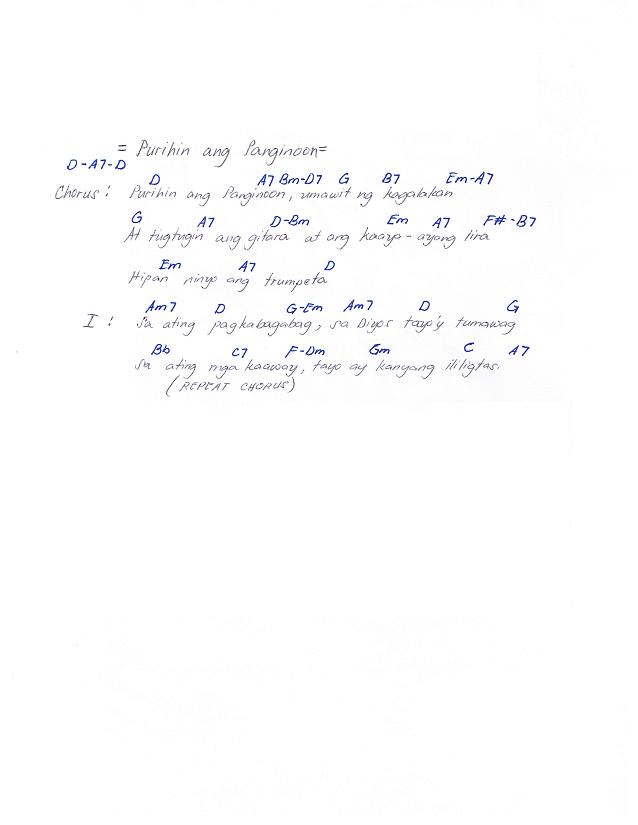 = Purihin ang Panginoon=
D-A7-D
D A7 Bm-D7 G B7 Em-A7
Chorus: Purihin ang Panginoon, umawit ng kagalakan
G A7 D-Bm Em A7 F#-B7
At tugtugin ang gitara at ang kaaya-ayang lira
Em A7 D
Hipan ninyo ang trumpeta
Am7 D G-Em Am7 D G
I: Sa ating pagkabagabag, sa Diyos tayo'y tumawag
Bb C7 F-Dm Gm C A7
Sa ating mga kaaway, tayo ay kanyang ililigtas.
(REPEAT CHORUS)